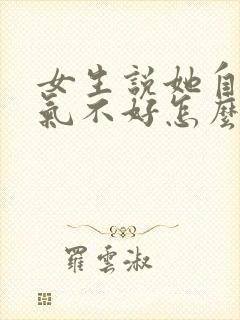 女生説她自
氣不好怎麼
羅雲淑